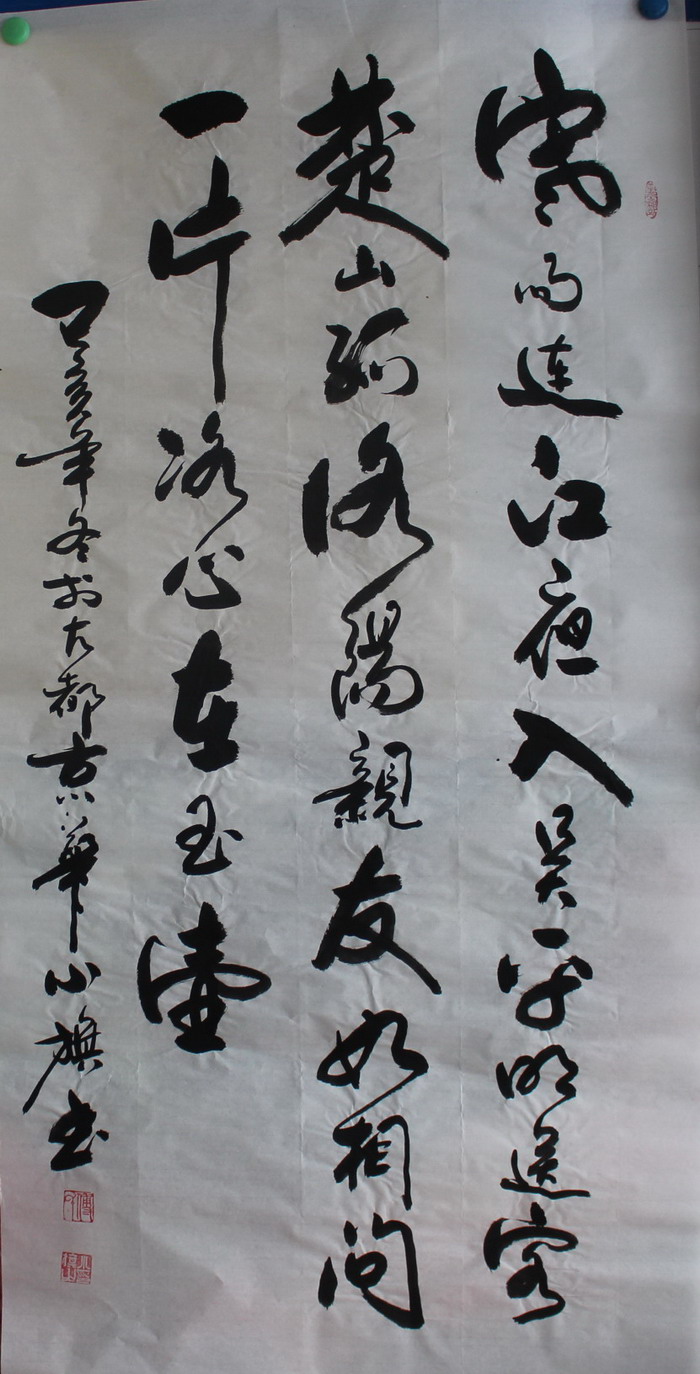 寒雨連江夜入吳平明送客
楚山孤洛陽親友如相問
一片冰心在玉壺
己亥年冬於古都京華小旗書